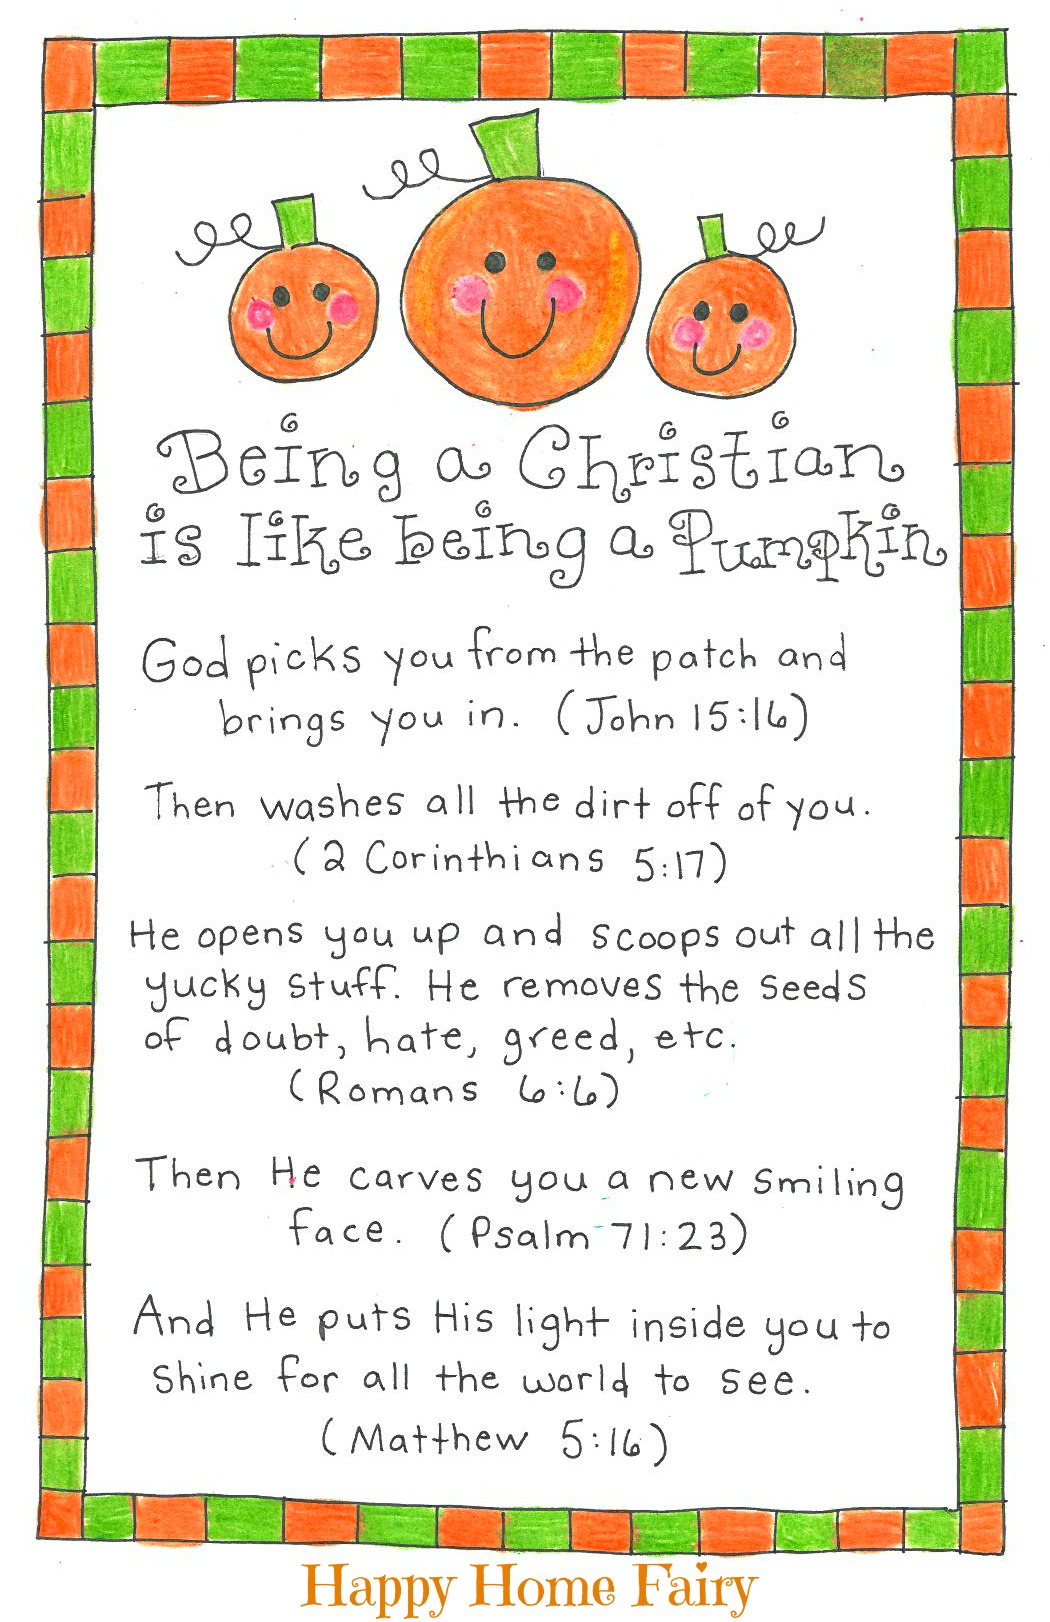 Being a Christian
is like being a Pumpkin
God picks you from the patch and
brings you in. (John 15:16)
Then washes all the dirt off of you.
(2 Corinthians 5:17)
He opens you up and scoops out all the
yucky stuff. He removes the seeds
of doubt, hate, greed, etc.
(Romans 6:6)
Then He carves you a new smiling
face. (Psalm 71:23)
And He puts His light inside you to
shine for all the world to see.
(Matthew 5:16)
Happy Home Fairy